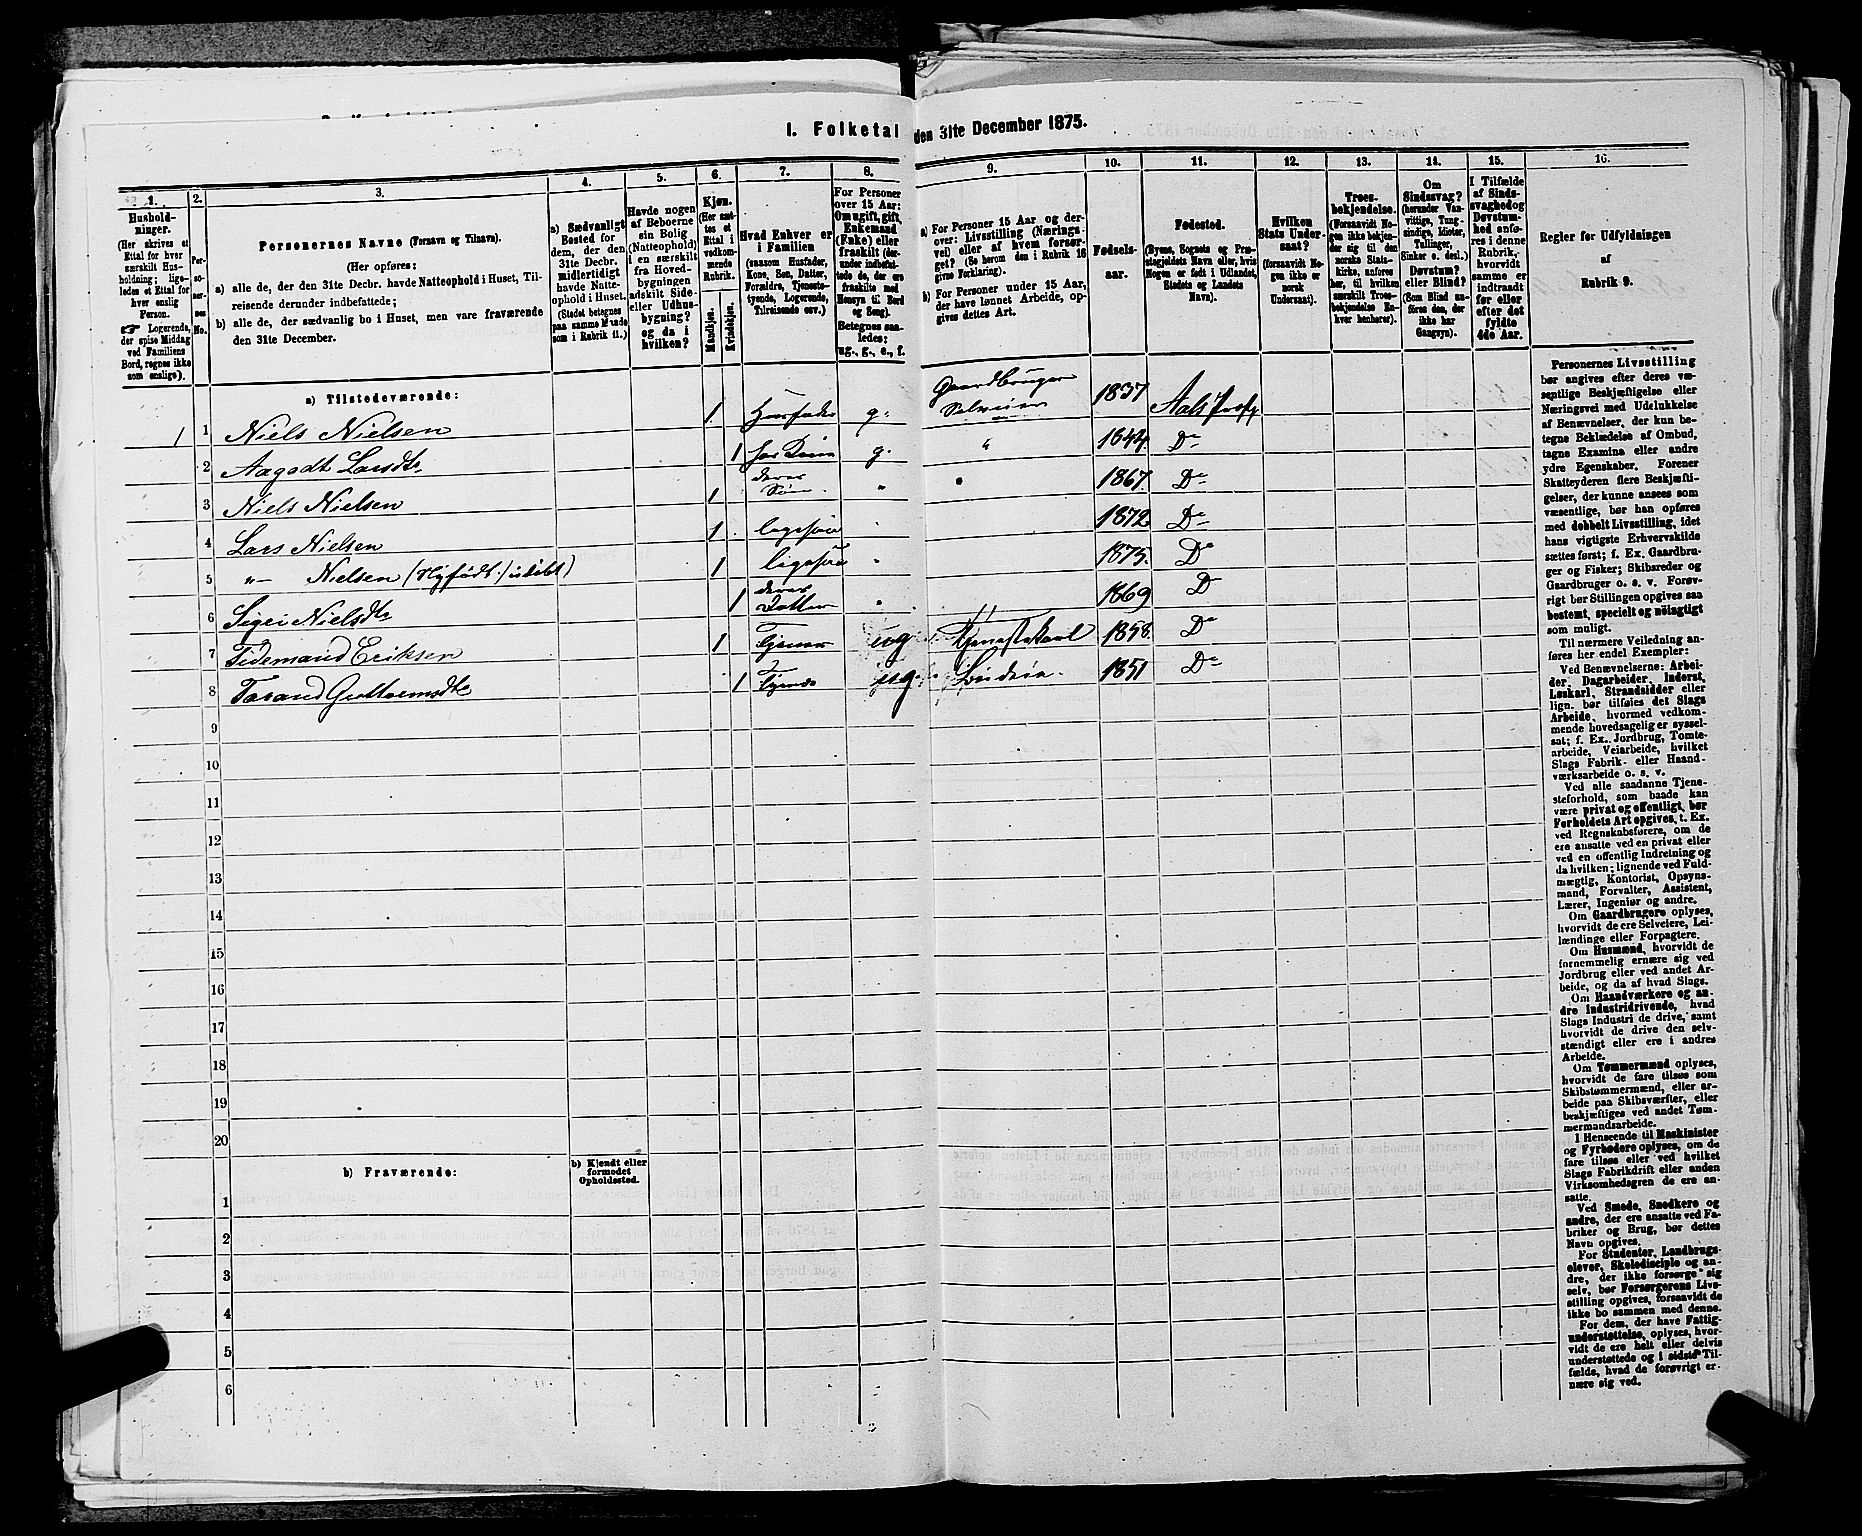 I. Folketal den 31te December 1875.
1.
Hushold-
ninger.
(Her skrives et
Ettal for hver
særskilt Hus-
holdning; lige-
ledes et Ettal for
hver enslig
Person.
☞ Logerende,
der spise Middag
ved Familiens
Bord, regnes ikke
som enslige).
2.
Per-
so-
ner-
nes
No.
3.
Personernes Navne (Fornavn og Tilnavn).
(Her opføres:
a) alle de, der den 31te Decbr. havde Natteophold i Huset, Til-
reisende derunder indbefattede;
b) alle de, der sædvanlig bo i Huset, men vare fraværende
den 31te December.
4.
a) Sædvanligt
Bosted for
dem, der den
31te Decbr.
midlertidigt
havde Natte-
ophold i Huset.
(Stedet betegnes
paa samme Maade
som i Rubrik 11.)
5.
Havde nogen
af Beboerne
sin Bolig
(Natteophold)
i en særskilt
fra Hoved-
bygningen
adskilt Side-
eller Udhus-
bygning?
og da i
hvilken?
6.
Kjøn.
(Her sæt-
tes et
Ettal i
vedkom-
mende
Rubrik.
Mandkjøn.
Kvindekjøn.
7.
Hvad Enhver er
i Familien
(saasom Husfader,
Kone, Søn, Datter,
Forældre, Tjeneste-
tyende, Logerende,
Tilreisende osv.)
8.
For Personer
over 15 Aar:
Om ugift, gift,
Enkemand
(Enke) eller
fraskilt (der-
under indbefat-
tede de, der ere
fraskilte med
Hensyn til Bord
og Seng).
Betegnes saa-
ledes:
ug., g., e., f.
9.
a) For Personer 15 Aar og der-
over: Livsstilling (Nærings-
vei) eller af hvem forsør-
get? (Se herom den i Rubrik 16
givne Forklaring).
b) For Personer under 15 Aar,
der have lønnet Arbeide, op-
gives dettes Art.
10.
Fødsels-
aar.
11.
Fødested.
(Byens, Sognets og Præ-
stegjeldets Navn eller, hvis
Nogen er født i Udlandet,
Stedets og Landets
Navn).
12.
Hvilken
Stats Under-
saat?
(forsaavidt No-
gen ikke er
norsk
Undersaat).
13.
Troes-
bekjendelse.
(Forsaavidt No-
gen ikke bekjen-
der sig til den
norske Stats-
kirke, anføres
her, til hvilken
særskilt Troes-
bekjendelse En-
hver henhører).
14.
Om
Sindssvag?
(herunder Van-
vittige, Tung-
sindige, Idioter,
Tullinger,
Sinker o. desl.)
Døvstum?
eller Blind?
(Som Blind an-
føres den, der
ikke har
Gangsyn).
15.
I Tilfælde
af Sinds-
svaghed og
Døvstum-
hed anfø-
res i denne
Rubrik,
hvorvidt
samme er
indtraadt
før eller
efter det
fyldte
4de Aar.
16.
Regler for Udfyldningen
af
Rubrik 9.
a) Tilstedeværende:
1 1 Niels Nielsen 1. Husfader g. Gaardbruger Selveier 1837 Aals Præstg
2 Aagodt Larsdtr 1 g. " 1844 Do
3 Niels Nielsen 1 deres Søn " " 1867 Do
4 Lars Nielsen 1 ligesaa 1872 Do
5 "- Nielsen (Nyfödt:/udöbt) 1 ligesaa 1875. Do
6 Sigri Nielsdtr 1 deres Datter 1869 D
7 Tidemand Eriksen 1 Tjener ug Tjenestekarl 1858 Do
8 Torand Guttormsdtr 1 Tjener ug 1851 Do
9
10
11
12
13
14
15
16
17
18
19
20
b) Fraværende:
b) Kjendt eller
formodet
Opholdssted.
1
2
3
4
5
6
Personernes Livsstilling
bør angives efter deres væ-
sentlige Beskjæftigelse eller
Næringsvei med Udelukkelse
af Benævnelser, der kun be-
tegne Beklædelse af Ombud,
tagne Examina eller andre
ydre Egenskaber. Forener
Skatteyderen flere Beskjæfti-
gelser, der kunne ansees som
væsentlige, bør han opføres
med dobbelt Livsstilling, idet
hans vigtigste Erhvervskilde
sættes først; f. Ex. Gaardbru-
ger og Fisker; Skibsreder og
Gaardbruger o. s. v. Forøv-
rigt bør Stillingen opgives saa
bestemt, specielt og nöiagtigt
som muligt.
Til nærmere Veiledning an-
føres her endel Exempler:
Ved Benævnelserne: Arbei-
der, Dagarbeider, Inderst,
Løskarl, Strandsidder eller
lign. bør tilføies det Slags
Arbeide, hvormed vedkom-
mende hovedsagelig er syssel-
sat; f. Ex. Jordbrug, Tomte-
arbeide, Veiarbeide, hvilket
Slags Fabrik- eller Haand-
værksarbeide o. s. v.
Ved alle saadanne Tjene-
steforhold, som baade kan
være privat og offentligt, bør
Forholdets Art opgives, t. Ex.
ved Regnskabsførere, om de
ere ansatte ved en privat eller
ved en offentlig Indretning og
da hvilken; lignende ved Fuld-
mægtig, Kontorist, Opsyns-
mand, Forvalter, Assistent,
Lærer, Ingeniør og andre.
Om Gaardbrugere oplyses,
hvorvidt de ere Selveiere, Lei-
lændinge eller Forpagtere.
Om Husmænd, hvorvidt de
fornemmelig ernære sig ved
Jordbrug eller ved andet Ar-
beide, og da af hvad Slags.
Om Haandværkere og an-
dre Industridrivende, hvad
Slags Industri de drive, samt
hvorvidt de drive den selv-
stændigt eller ere i andres
Arbeide.
Om Tømmermænd oplyses,
hvorvidt de fare tilsøs som
Skibstømmermænd, eller ar-
beide paa Skibsværfter, eller
beskjæftiges ved andet Tøm-
mermandsarbeide.
I Henseende til Maskinister
og Fyrbødere oplyses, om de
fare tilsøs eller ved hvilket
Slags Fabrikdrift eller anden
Virksomhedsgren de ere an-
satte.
Ved Smede, Snedkere og
andre, der ere ansatte ved Fa-
briker og Brug, bør dettes
Navn opgives.
For Studenter, Landbrugs-
elever, Skoledisciple og an-
dre, der ikke forsørge sig
selv, bør Forsørgerens Livs-
stilling opgives, forsaavidt de
ikke bo sammen med denne.
For dem, der have Fattig-
understøttelse, oplyses, hvor-
vidt de ere helt eller delvis
understøttede og i sidste Til-
fælde, hvad de forøvrigt er-
nære sig ved.